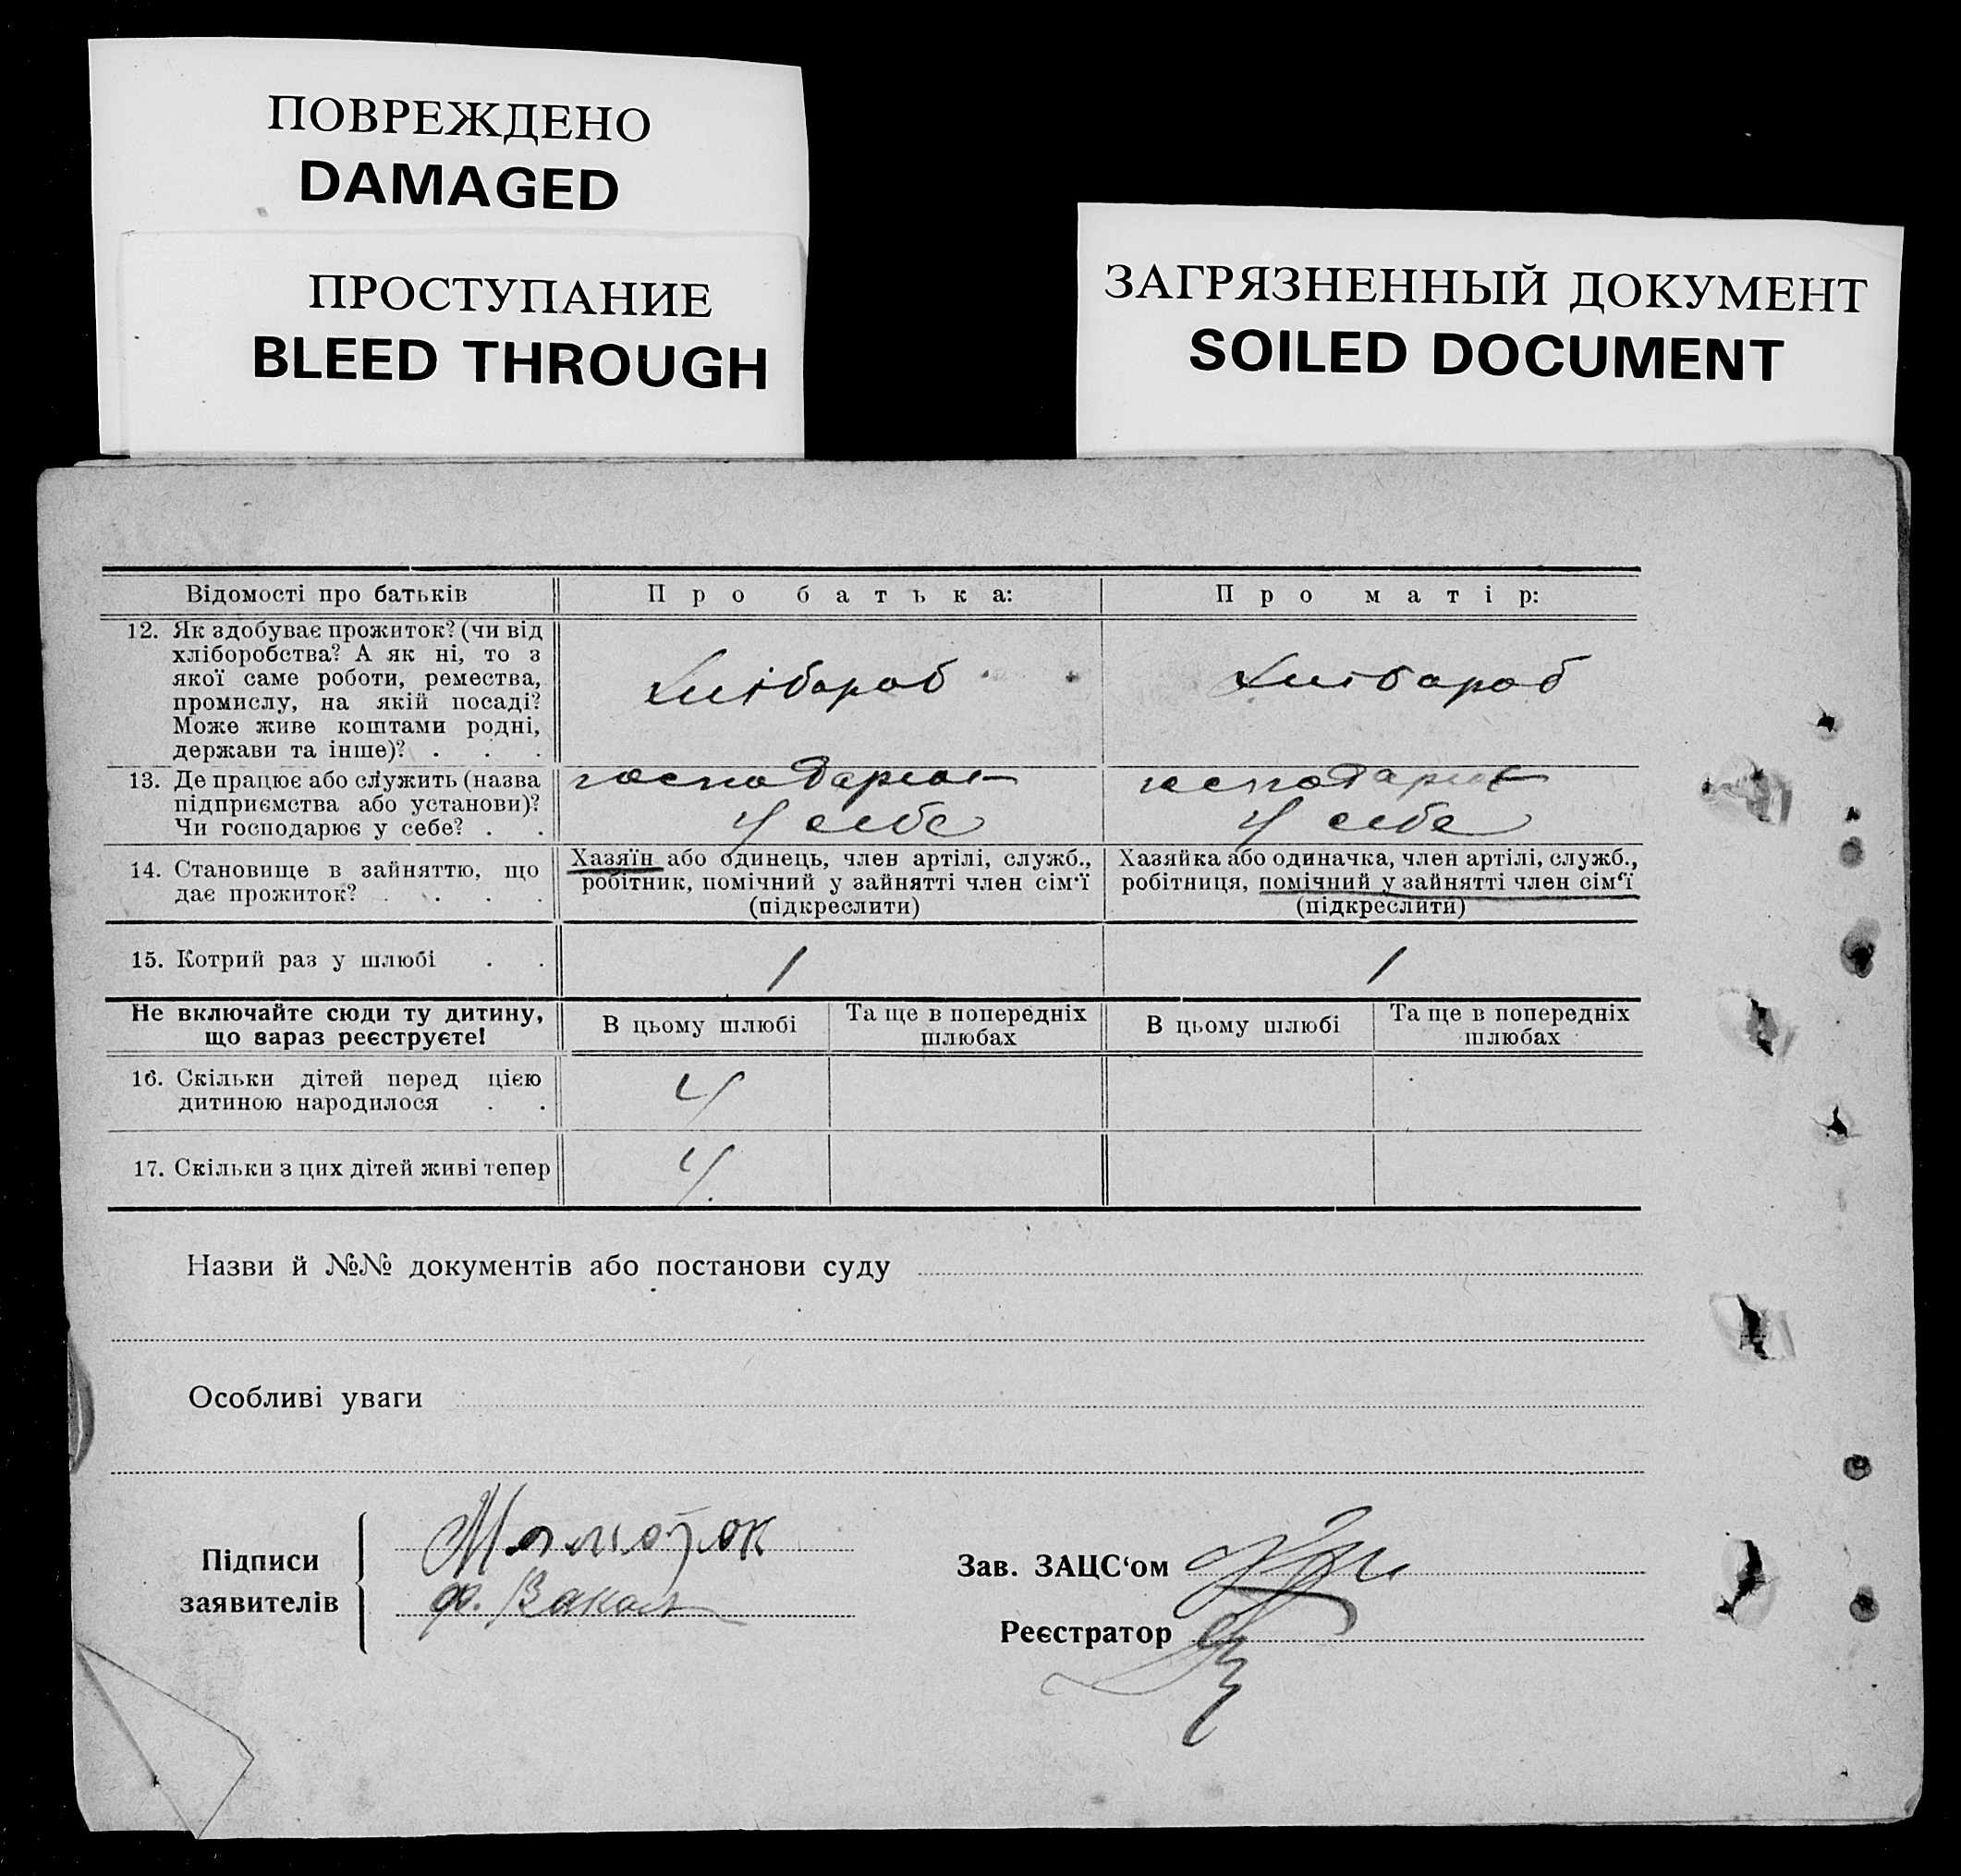 ПОВРЕЖДЕНО
DAMAGED
ПРОСТУПАНИЕ
BLEED THROUGH
ЗАГРЯЗНЕННЫЙ ДОКУМЕНТ
SOILED DOCUMENT
Відомості про батьків
Про батька:
Про матір:
12. Як здобуває прожиток? (чи від
хліборобства? А як ні, то з
якої саме роботи, ремества,
промислу, на якій посаді?
Може живе коштами родні,
держави та інше)? . . .
хлібороб
хлібороб
13. Де працює або служить (назва
підприємства або установи)?
Чи господарює у себе? . .
господарює
у себе
господарює
у себе
14. Становище в зайняттю, що
дає прожиток? . . . .
Хазяїн або одинець, член артілі, служб.,
робітник, помічний у зайнятті член сім'ї
(підкреслити)
Хазяйка або одиначка, член артілі, служб.,
робітниця, помічний у зайнятті член сім'ї
(підкреслити)
15. Котрий раз у шлюбі . .
1
1
Не включайте сюди ту дитину,
що зараз реєструєте!
В цьому шлюбі
Та ще в попередніх
шлюбах
В цьому шлюбі
Та ще в попередніх
шлюбах
16. Скільки дітей перед цією
дитиною народилося . .
4
17. Скільки з цих дітей живі тепер
4
Назви й №№ документів або постанови суду
Особливі уваги
Підписи
заявителів
ф.
Зав. ЗАЦС‘ом
Реєстратор